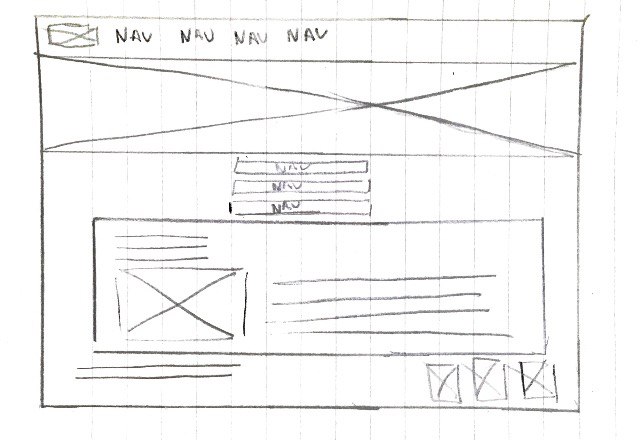 NAV NAV NAV NAV
NAV
NAV
NAV